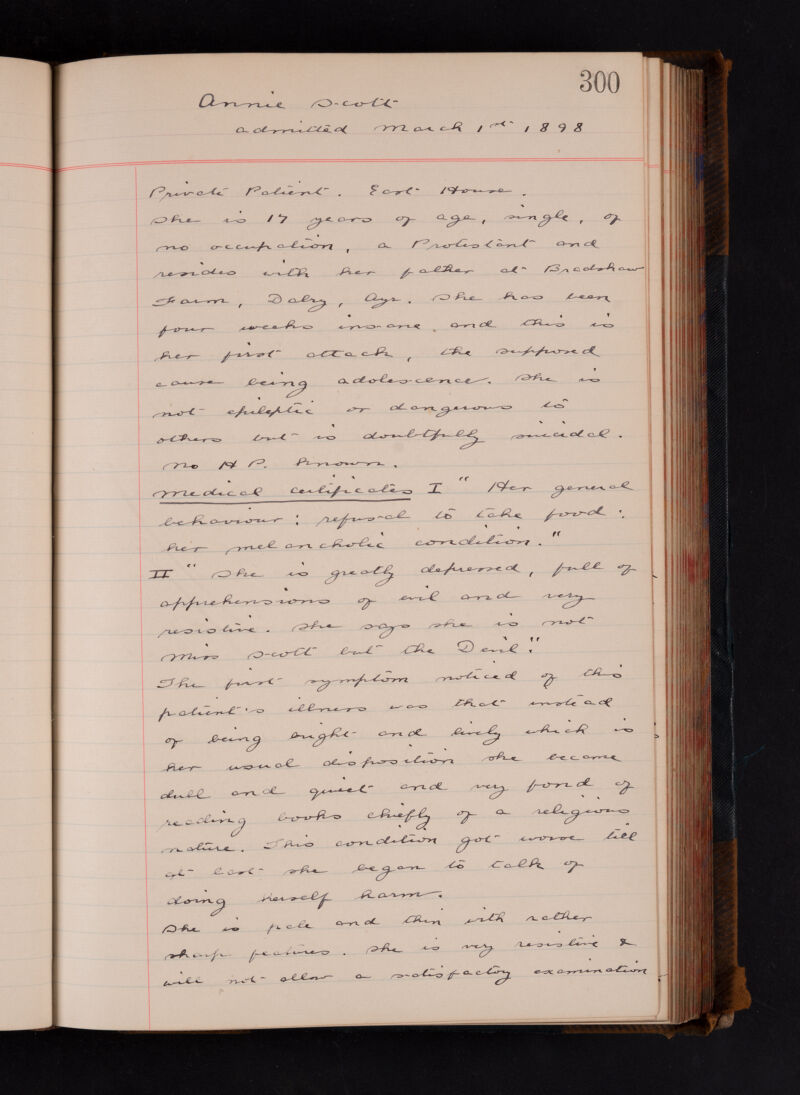 300
Annie Scott
admitted March 1st 1898
Private Patient. East House.
She is 17 years of age, single, of
no occupation, a Protestant and
resides with her father at Bradshaw
Farm, Dalry, Ayr. She has been
four weeks insane and this is
her first attack, the supposed
cause being adolescence. She is
not epileptic or dangerous to
others but is doubtfully suicidal.
No H P. known.
Medical certificates I " Her general
behaviour: refusal to take food:
her melancholic condition."
II " She is greatly depressed, full of
apprehensions of evil and very
resistive. She says she is not
Miss Scott but the Devil."
The first symptom noticed of this
patient's illness was that instead
of being bright and lively which is
her usual disposition she became
dull and quiet and very fond of
reading books chiefly of a religious
nature. This condition got worse till
at last she began to talk of
doing herself harm.
She is pale and thin with rather
sharp features. She is very resistive &
will not allow a satisfactory examination